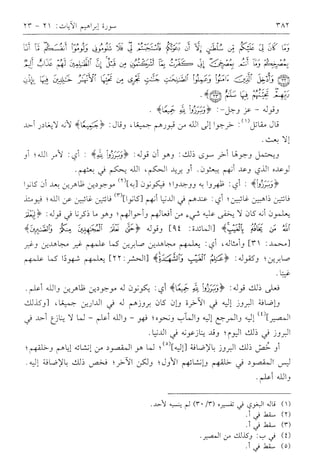 ٣٨٢ سورة إبراهيم الآيات: ٢١ - ٢٣
وَمَا كَانَ لِيَ عَلَيْكُم مِّن سُلْطَانٍ إِلَّا أَن دَعَوْتُكُمْ فَاسْتَجَبْتُمْ لِي فَلَا تَلُومُونِي وَلُومُوا أَنفُسَكُم مَّا أَنَا
بِمُصْرِخِكُمْ وَمَا أَنتُم بِمُصْرِخِيَّ إِنِّي كَفَرْتُ بِمَا أَشْرَكْتُمُونِ مِن قَبْلُ إِنَّ الظَّالِمِينَ لَهُمْ عَذَابٌ أَلِيمٌ
﴿٢٢﴾ وَأُدْخِلَ الَّذِينَ آمَنُوا وَعَمِلُوا الصَّالِحَاتِ جَنَّاتٍ تَجْرِي مِن تَحْتِهَا الْأَنْهَارُ خَالِدِينَ فِيهَا بِإِذْنِ
رَبِّهِمْ تَحِيَّتُهُمْ فِيهَا سَلَامٌ ﴿٢٣﴾.
وقوله - عز وجل-: ﴿وَبَرَزُوا لِلَّهِ جَمِيعًا﴾.
قال مقاتل(١): خرجوا إلى الله من قبورهم جميعًا، وقال: ﴿جَمِيعًا﴾ لأنه لايغادر أحد
إلا بعث.
ويحتمل وجوهًا أخر سوى ذلك: وهو أن قوله: ﴿وَبَرَزُوا لِلَّهِ﴾: أي: لأمر الله؛ أو
لوعده الذي وعد أنهم يبعثون. أو يريد الحكم، الله يحكم في بعثهم.
﴿وَبَرَزُوا لِلَّهِ﴾: أي: ظهروا به ووجدوا؛ فيكونون [به](٢) موجودين ظاهرين بعد أن كانوا
فائتين ذاهبين غائبين؛ أي: عندهم في الدنيا أنهم [كانوا](٣) فائتين غائبين عن الله؛ فيومئذ
يعلمون أنه كان لا يخفى عليه شيء من أفعالهم وأحوالهم؛ وهو ما ذكرنا في قوله: ﴿لِيَعْلَمَ
اللَّهُ مَن يَخَافُهُ بِالْغَيْبِ﴾ [المائدة: ٩٤] وقوله ﴿حَتَّى نَعْلَمَ الْمُجَاهِدِينَ مِنكُمْ وَالصَّابِرِينَ﴾
[محمد: ٣١] وأمثاله، أي: يعلمهم مجاهدين صابرين كما علمهم غير مجاهدين وغير
صابرين؛ وكقوله: ﴿عَالِمُ الْغَيْبِ وَالشَّهَادَةِ﴾ [الحشر: ٢٢] يعلمهم شهودًا كما علمهم
غيبًا.
فعلى ذلك قوله: ﴿وَبَرَزُوا لِلَّهِ جَمِيعًا﴾ أي: يكونون له موجودين ظاهرين والله أعلم.
وإضافة البروز إليه في الآخرة وإن كان بروزهم له في الدارين جميعًا، [وكذلك
المصير](٤) إليه والمرجع إليه والمآب ونحوه؛ فهو - والله أعلم - لما لا ينازع أحد في
البروز في ذلك اليوم؛ وقد ينازعونه في الدنيا.
أو خُصّ ذلك البروز بالإضافة [إليه](٥)؛ لما هو المقصود من إنشائه إياهم وخلقهم؛
ليس المقصود في خلقهم وإنشائهم الأول؛ ولكن الآخر؛ فخص ذلك بالإضافة إليه.
والله أعلم.
(١) قاله البغوي في تفسيره (٣/ ٣٠) لم ينسبه لأحد.
(٢) سقط في أ.
(٣) سقط في أ.
(٤) في ب: وكذلك من المصير.
(٥) سقط في أ.